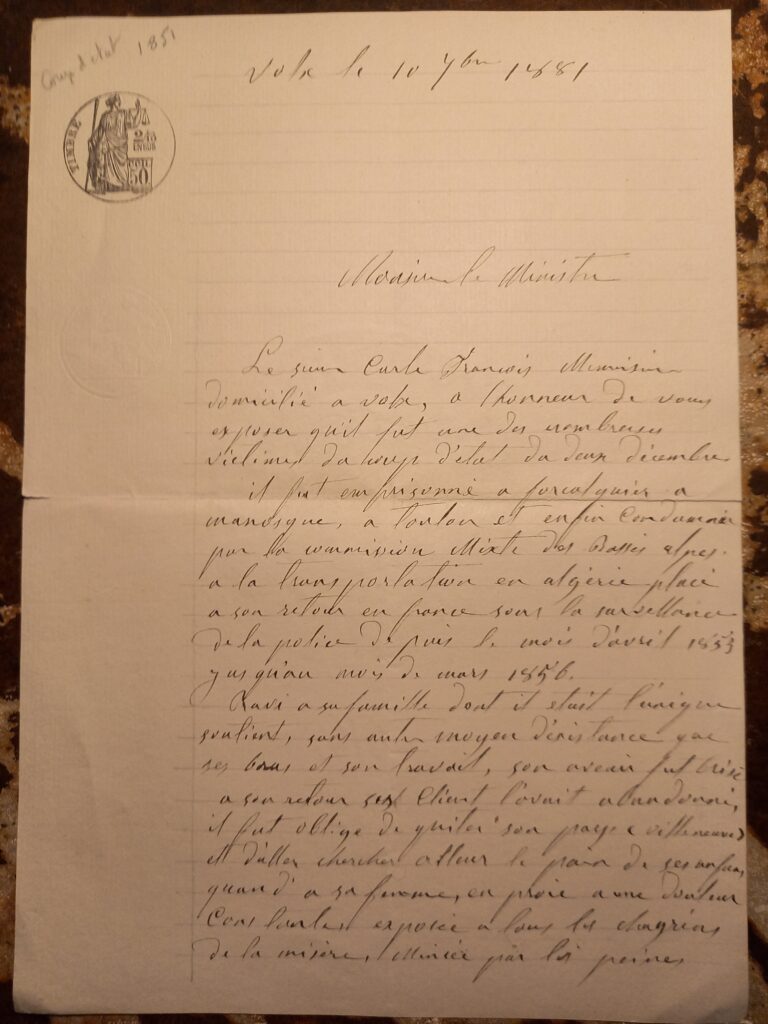 Coup d'etat 1851
Volx le 10 7bre 1881
TIMBRE
2/10
EN SUS
50
Monsieur le Ministre
Le sieur Curle François Menuisier
domicilié a volx, a lhonneur de vous
exposer qu'il fut une des nombreuses
victimes du coup d'etat du deux décembre
il fut emprisonné a forcalquier a
manosque, a toulon et enfin Condamné
par la commission Mixte des Basses alpes
a la transportation en algérie placé
a son retour en france sous la surveillance
de la police depuis le mois d'avril 1853
jusqu'au mois de mars 1856.
Ravi a sa famille dont il etait l'unique
soutient, sans autre moyen d'éxistance que
ses bras et son travail, son avenir fut brisé
a son retour ses Client l'avait abandonné,
il fut oblige de quiter son pays (villeneuve)
et d'aller chercher alleur le pain de ses enfans,
quand' a sa femme, en proie a une douleur
Constante, exposée a tous les chagrins
de la misère, Minée par les peines